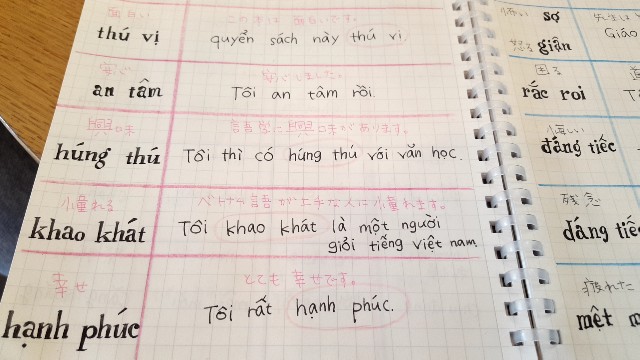 面白い
この本は 面白いです。
thú vị
quyển sách này thú vị.
安心
安心しました。
an tâm
Tôi an tâm rồi.
興味
言語学に興味があります。
húng thú
Tôi thì có húng thú với văn học.
憧れる
ベトナム語が上手な人に憧れます。
khao khát
Tôi khao khát là một người
giỏi tiếng việt nam.
幸せ
とても 幸せです。
hạnh phúc
Tôi rất hạnh phúc.
怖い
sợ
先生は
Giáo
怒る
giận
困る
rắc roi
悔しい
đáng tiếc
残念
dáng tiế
疲れた
mệt m